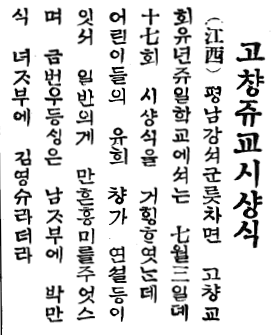 고챵쥬교시샹식
(江西) 평남강셔군룻차면 고챵교
회유년쥬일학교에셔는 七月三일뎨
十七회 시샹식을 거힝ᄒᆞ엿ᄂᆞᆫ데
어린이들의 유희 챵가 연셜등이
잇셔 일반의게 만흔흥미를주엇스
며 금번우등싱은 남ᄌᆞ부에 박만
식 녀ᄌᆞ부에 김영슈라더라